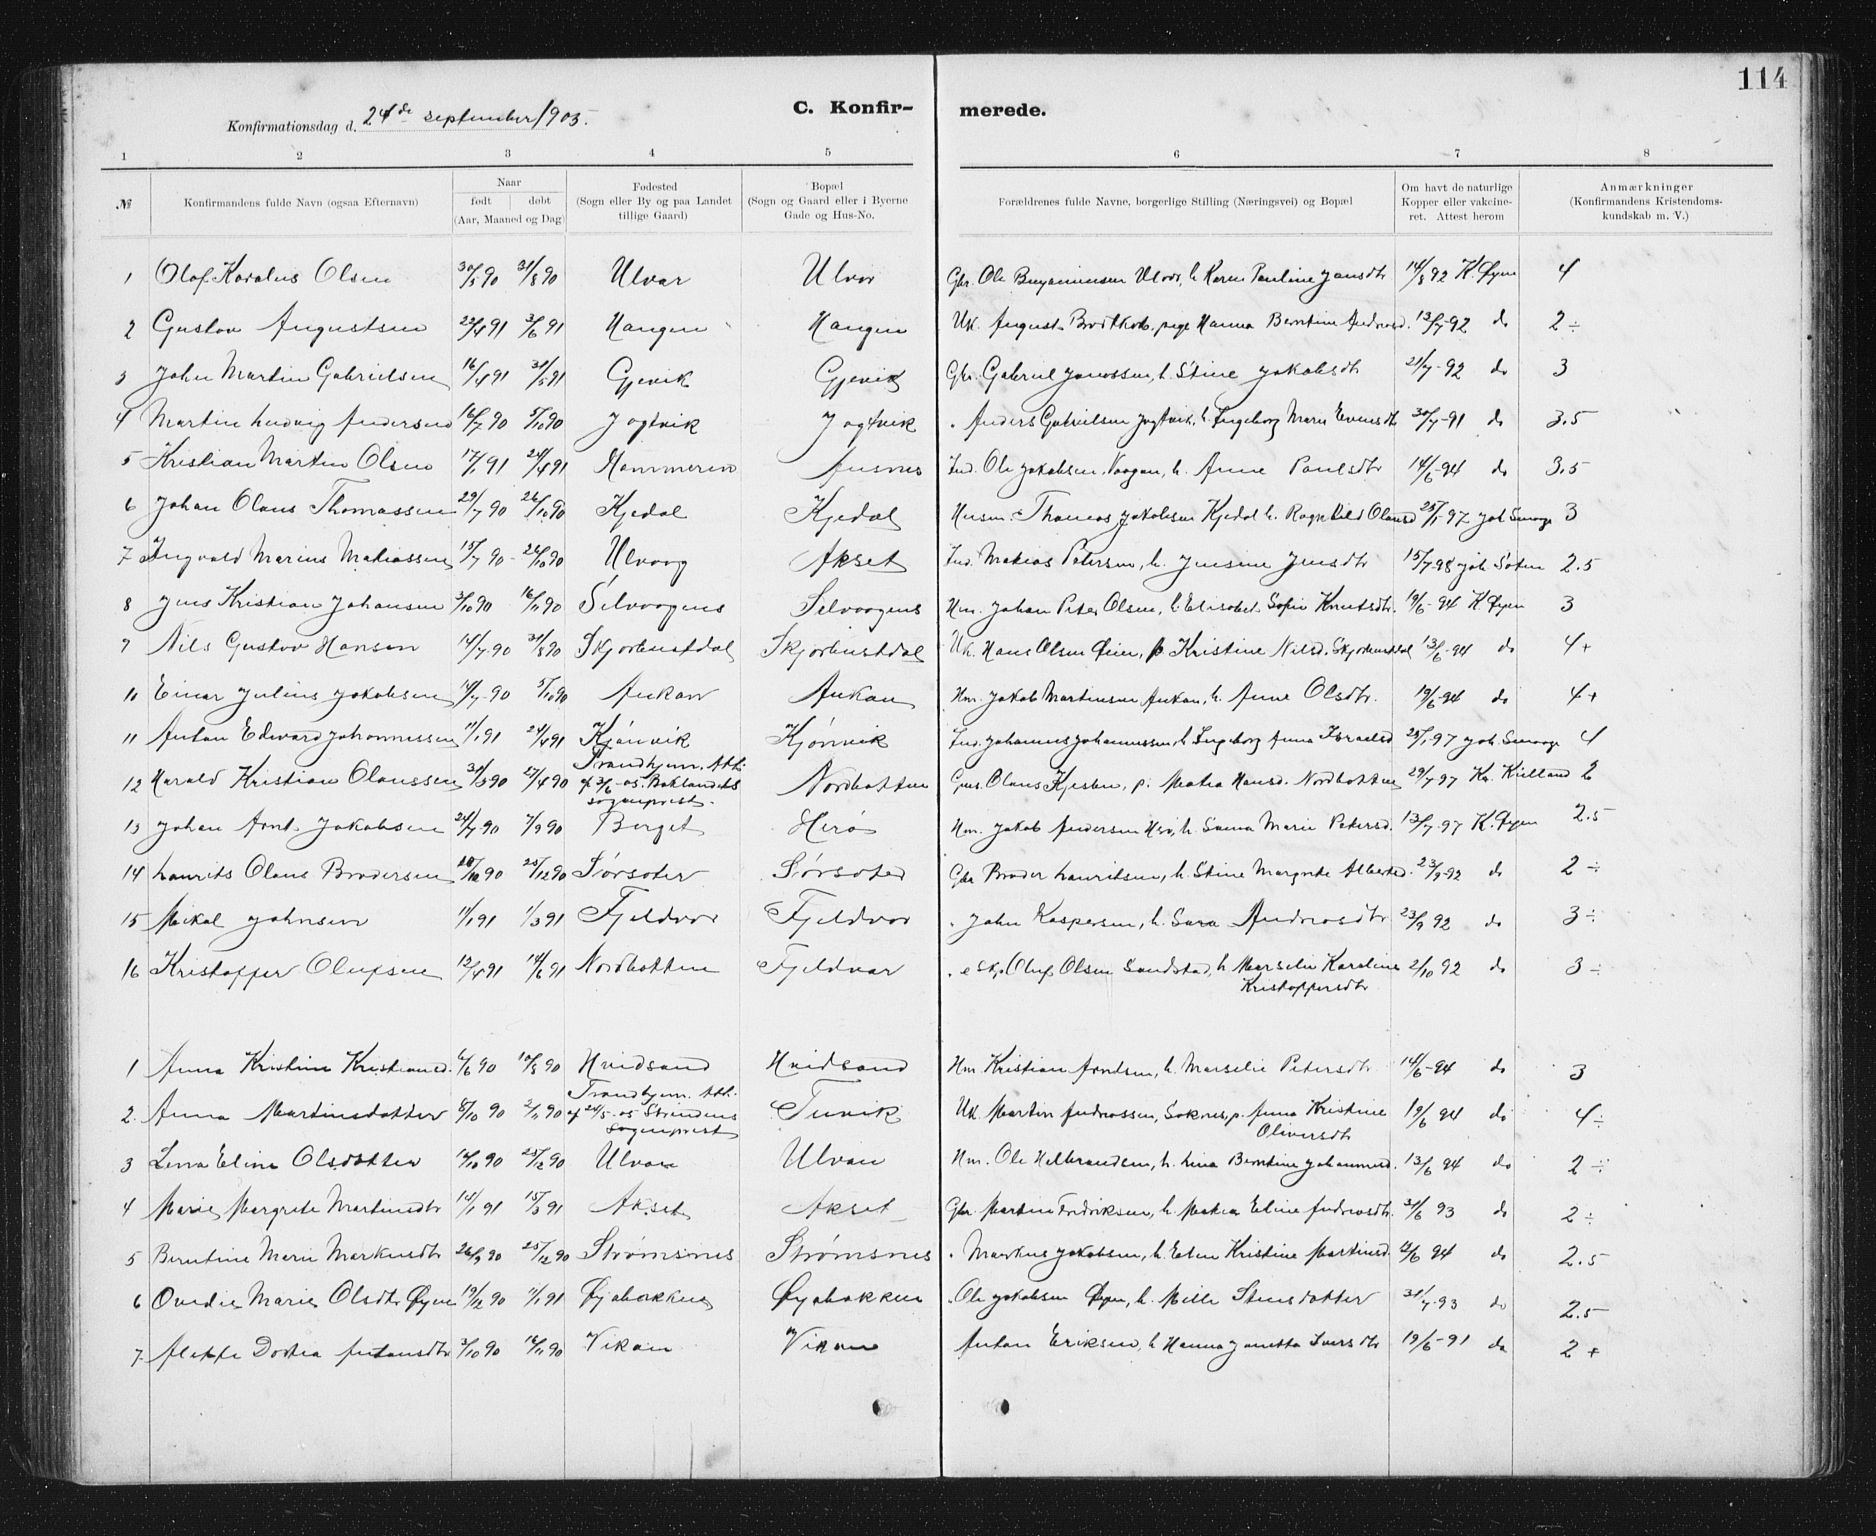 114
Konfirmationsdag d. 24de september 1905.
C. Konfir- merede.
1 2 3 4 5 6 7 8
№ Konfirmandens fulde Navn (ogsaa Efternavn) Naar født døbt (Aar, Maaned og Dag) Fødested (Sogn eller By og paa Landet tillige Gaard) Bopæl (Sogn og Gaard eller i Byerne Gade og Hus-No. Forældrenes fulde Navne, borgerlige Stilling (Næringsvei) og Bopæl Om havt de naturlige Kopper eller vakcine- ret. Attest herom Anmærkninger (Konfirmandens Kristendoms- kundskab m. V.)
1 Olaf Karolus Olsen 30/5 90 31/8 90 Ulvar Ulvar Gbr. Ole Benjaminsen Ulvar, h. Karen Pauline Jansdtr 14/8 92 K. Øyen 4
2 Gustav Augustsen 22/4 91 3/6 91 Haugen Haugen Uk. August Brodtkorb, pige Hanna Berntine Andreasd. 13/7-92 do 2÷
3 Johan Martin Gabrielsen 16/4 91 31/5 91 Gjevik Gjevik Gbr. Gabriel Jonossen, h. Stine Jakobsdtr 21/7-92 do 3
4 Martin Ludvig Andersen 16/7 90 5/10 90 Jogtvik Jogtvik Anders Gabrielsen Jogtvik, h. Ingeborg Marie Evensdtr 30/7-91 do 3.5
5 Kristian Martin Olsen 17/1 91 24/4 91 Hammeren Ausnes Ind. Ole Jakobsen Vaagan, h. Anne Paulsdtr 14/6-94 do 3.5
6 Johan Olaus Thomassen 29/7 90 26/10 90 Kjedal Kjedal Husm. Thomas Jakobsen Kjedal h. Ragnhild Olausd 25/1-97 Joh Smaage 3
7 Ingvald Marius Mathiassen 15/7 90 26/10 90 Ulvaag Akset Ind. Matias Petersen, h. Jensine Jensdtr 15/7-98 Joh Soten 2.5
8 Jens Kristian Johansen 3/10 90 16/11 90 Selvaagens Selvaagens Hm. Johan Peter Olsen, h. Elisabet Sofie Knutsdtr. 19/6-94 K Øyen 3
9 Nils Gustav Hansen 14/7-90 31/8 90 Skjorbustdal Skjorbustdal Uk. Hans Olsen Øien, p. Kristine Nilsd. Skjorbustdal 13/6-94 do 4+
10 Einar Julius Jakobsen 14/7-90 5/10 90 Aukan Aukan Hm. Jakob Martinsen Aukan, h. Anne Olsdtr. 19/6-94 do 4+
11 Anton Edvard Johannessen 11/1 91 24/4 91 Kjønvik Kjønvik Ind. Johannes Johannessen, h. Ingeborg Anna Israelsd 25/1-97 Joh. Smaage 4
12 Harald Kristian Olaussen 31/3 90 27/4 90 Trondhjem. Att. af 3/6-05. Baklandets sogneprest. Nordbotten Olaus Kjesbu, p. Matea Hansd. Nordbotten 29/7 97 Kr. Kielland 2
13 Johan Arnt Jakobsen 24/7 90 7/9 90 Berget Herø Hm. Jakob Andersen Herø, h. Sanna Marie Petersd. 13/7-97 K. Øyen 2.5
14 Laurits Olaus Brodersen 10/12 90 25/12 90 Sørsoter Sørsoter Gbr Broder Lauritsen, h. Stine Margrete Albertsd. 23/9-92 do 2÷
15 Mikal Johnsen 11/1 91 1/3 91 Fjeldvær Fjeldvær John Kaspersen, h. Sara Andreasdtr 23/9 92 do 3÷
16 Kristoffer Olufsen 12/4 91 14/6 91 Nordbotten Fjeldvær Oluf Olsen Sandstad, h. Marselie Karoline Kristoffersdtr 2/10 92 do 3÷
1 Anna Kristine Kristiansd. 6/6 90 10/8 90 Hvidsand Hvidsand Hm Kristian Arntsen, h. Marselie Petersdtr 14/6-94 do 3
2. Anna Martinsdatter 8/10 90 2/11 90 Trondhjem. Att. af 24/5-05 Strindens Sogneprest Tuvik Uk. Martin Andreassen, Soknes, p. Anna Kristine Oliversdtr 19/6 94 do 4÷
3 Lina Eline Olsdatter 14/10 90 25/12 90 Ulvan Ulvan Hm. Ole Helbrandsen, h. Lina Berntine Johannesd. 13/6 94 do 2÷
4 Marie Margrete Martinsdtr 14/1 91 15/3 91 Akset Akset Gbr Martin Fredriksen, h. Matea Eline Andreasdtr. 31/6 93 do 2÷
5 Berntine Marie Markusdtr 26/9 90 25/12 90 Strømsnes Strømsnes Markus Jakobsen, h. Elen Kristine Martinsd. 4/6 94 do 2.5
6 Ovedie Marie Olsdtr Øyen 19/12 90 11/1 91 Øyabakken Øyabakken Ole Jakobsen Øyen, h. Mille Stensdatter 31/7-93 do 2.5
7. Alette Dortea Antonsdtr 3/10 90 16/11 90 Vikan Vikan Anton Eriksen, h Hanna Janetta Iversdtr 19/6-91 do 2+